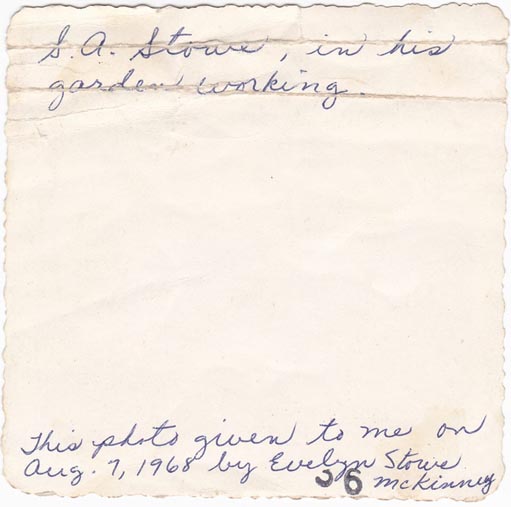 S. A. Stowe, in his
garden working.
This photo given to me on
Aug. 7, 1968 by Evelyn Stowe
McKinney
36